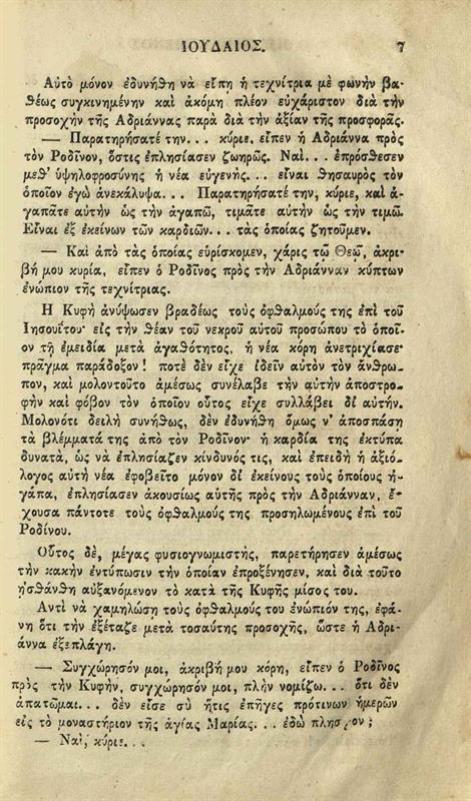 ΙΟΥΔΑΙΟΣ. 7
Αὐτὸ μόνον ἐδυνήθη νὰ εἴπῃ ἡ τεχνίτρια μὲ φωνὴν βα-
θέως συγκινημένην καὶ ἀκόμη πλέον εὐχάριστον διὰ τὴν
προσοχὴν τῆς Ἀδριάννας παρὰ διὰ τὴν ἀξίαν τῆς προσφορᾶς.
— Παρατηρήσατέ την... κύριε, εἶπεν ἡ Ἀδριάννα πρὸς
τὸν Ροδῖνον, ὅστις ἐπλησίασεν ζωηρῶς. Ναί... ἐπρόσθεσεν
μεθ' ὑψηλοφροσύνης ἡ νέα εὐγενής... εἶναι θησαυρὸς τὸν
ὁποῖον ἐγὼ ἀνεκάλυψα... Παρατηρήσατέ την, κύριε, καὶ ἀ-
γαπᾶτε αὐτὴν ὡς τὴν ἀγαπῶ, τιμᾶτε αὐτὴν ὡς τὴν τιμῶ.
Εἶναι ἐξ ἐκείνων τῶν καρδιῶν... τὰς ὁποίας ζητοῦμεν.
— Καὶ ἀπὸ τὰς ὁποίας εὑρίσκομεν, χάρις τῷ Θεῷ, ἀκρι-
βή μου κυρία, εἶπεν ὁ Ροδῖνος πρὸς τὴν Ἀδριάνναν κύπτων
ἐνώπιον τῆς τεχνίτριας.
Ἡ Κυφὴ ἀνύψωσεν βραδέως τοὺς ὀφθαλμούς της ἐπὶ τοῦ
Ιησουΐτου· εἰς τὴν θέαν τοῦ νεκροῦ αὐτοῦ προσώπου τὸ ὁποῖ-
ον τῇ ἐμειδία μετὰ ἀγαθότητος, ἡ νέα κόρη ἀνετριχίασε·
πρᾶγμα παράδοξον! ποτὲ δὲν εἶχε ἰδεῖν αὐτὸν τὸν ἄνθρω-
πον, καὶ μολοντοῦτο ἀμέσως συνέλαβε τὴν αὐτὴν ἀποστρο-
φὴν καὶ φόβον τὸν ὁποῖον οὗτος εἶχε συλλάβει δι αὐτήν.
Μολονότι δειλὴ συνήθως, δὲν ἐδυνήθη ὅμως ν' ἀποσπάσῃ
τὰ βλέμματά της ἀπὸ τὸν Ροδῖνον· ἡ καρδία της ἐκτύπα
δυνατὰ, ὡς νὰ ἐπλησίαζεν κίνδυνός τις, καὶ ἐπειδὴ ἡ ἀξιό-
λογος αὐτὴ νέα ἐφοβεῖτο μόνον δι ἐκείνους τοὺς ὁποίους ἠ-
γάπα, ἐπλησίασεν ἀκουσίως αὐτῆς πρὸς τὴν Ἀδριάνναν, ἔ-
χουσα πάντοτε τοὺς ὀφθαλμούς της προσηλωμένους ἐπὶ τοῦ
Ροδίνου.
Οὗτος δὲ, μέγας φυσιογνωμιστὴς, παρετήρησεν ἀμέσως
τὴν κακὴν ἐντύπωσιν τὴν ὁποίαν ἐπροξένησεν, καὶ διὰ τοῦτο
ᾐσθάνθη αὐξανόμενον τὸ κατὰ τῆς Κυφῆς μῖσος του.
Ἀντὶ νὰ χαμηλώσῃ τοὺς ὀφθαλμούς του ἐνώπιόν της, ἐφά-
νη ὅτι τὴν ἐξέταζε μετὰ τοσαύτης προσοχῆς, ὥστε ἡ Ἀδρι-
άννα ἐξεπλάγη.
— Συγχώρησόν μοι, ἀκριβή μου κόρη, εἶπεν ὁ Ροδῖνος
πρὸς τὴν Κυφὴν, συγχώρησόν μοι, πλὴν νομίζω... ὅτι δὲν
ἀπατῶμαι... δὲν εἶσε σὺ ἥτις ἐπῆγες πρότινων ἡμερῶν
εἰς τὸ μοναστήριον τῆς ἁγίας Μαρίας... ἐδὼ πλησίον;
— Ναὶ, κύριε...